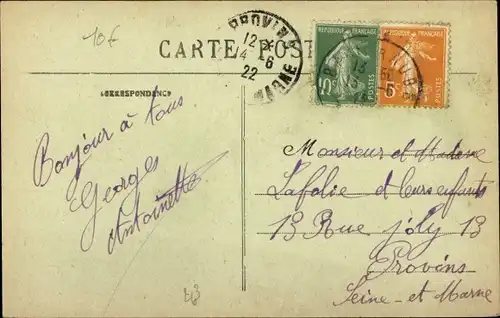 10€
CARTE POST
PROVINS
12 *
4 6
22
MARNE
REPUBLIQUE FRANÇAISE
POSTES
10c
REPUBLIQUE FRANÇAISE
POSTES
5c
CORRESPONDANCE
Bonjour à tous.
Georges
Antoinette
Monsieur et Madame
Lafolie et leurs enfants
13 Rue joly 13
Provins
Seine-et Marne